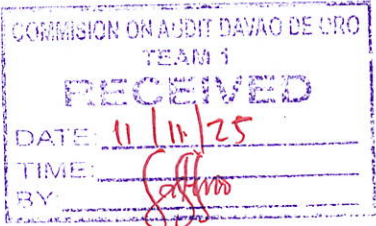 COMMISION ON AUDIT DAVAO DE ORO
TEAM 1
RECEIVED
DATE: 11/11/25
TIME:
BY: